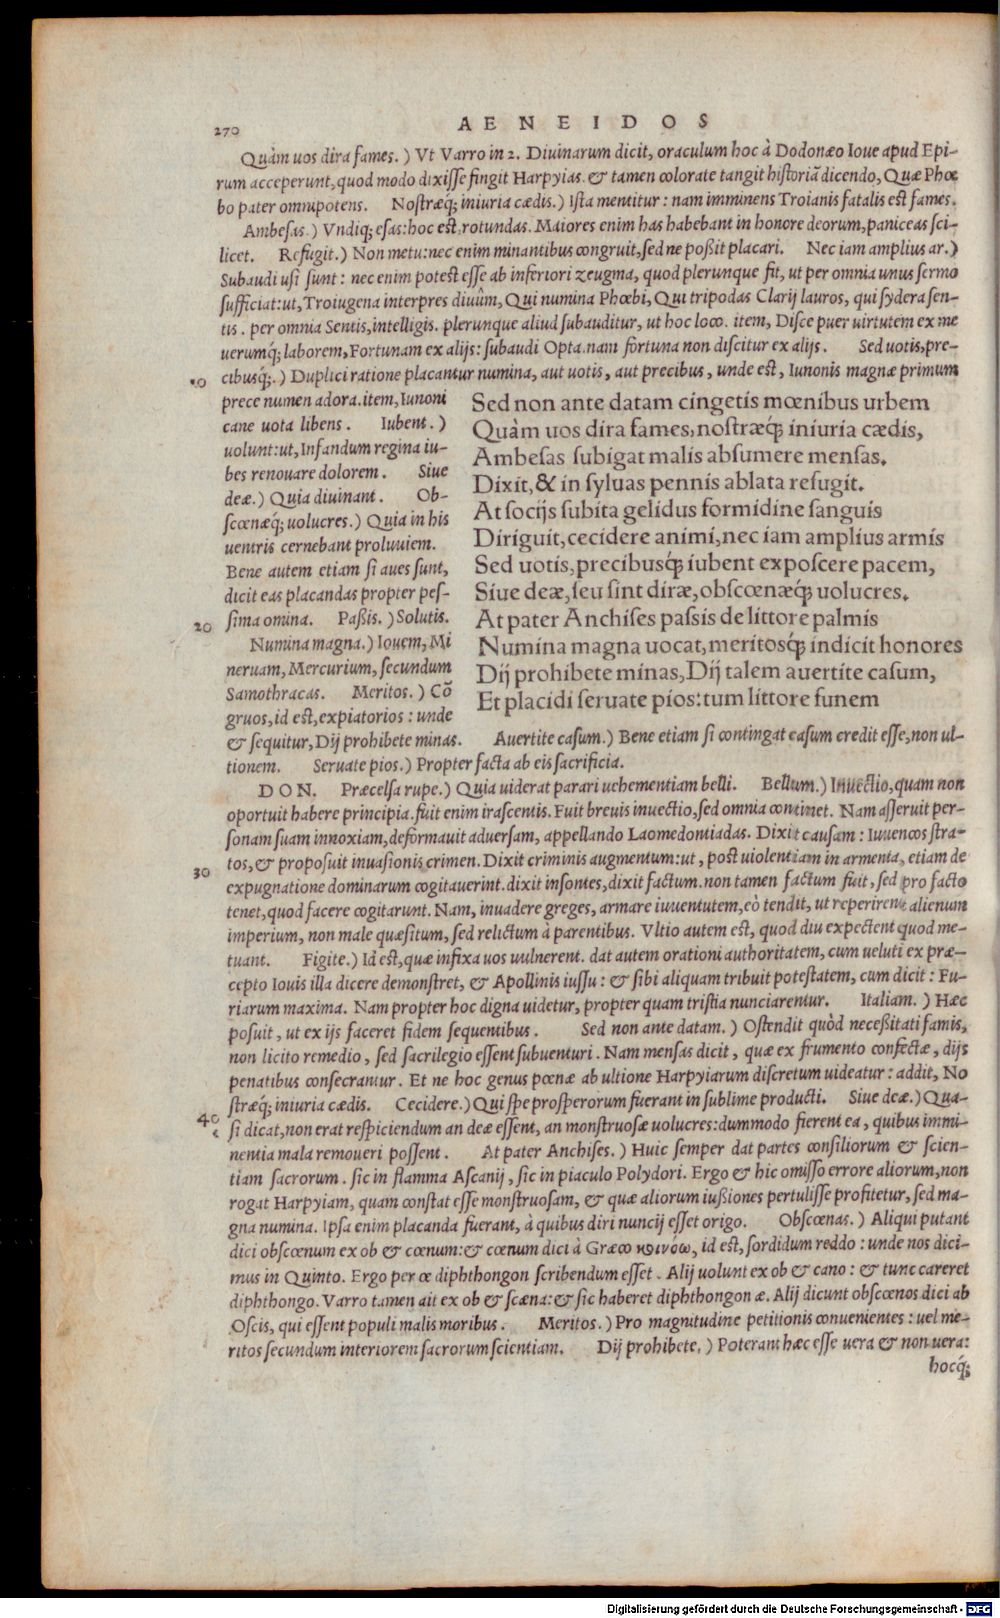 270
AENEIDOS
Quàm uos dira fames.) Vt Varro in 2. Diuinarum dicit, oraculum hoc à Dodonæo Ioue apud Epi-
rum acceperunt, quod modo dixisse fingit Harpyias. & tamen colorate tangit historiã dicendo, Quæ Phœ
bo pater omnipotens. Nostræq́; iniuria cædis.) Ista mentitur: nam imminens Troianis fatalis est fames.
Ambesas.) Vndiq; esas: hoc est, rotundas. Maiores enim has habebant in honore deorum, paniceas sci-
licet. Refugit.) Non metu: nec enim minantibus congruit, sed ne poßit placari. Nec iam amplius ar.)
Subaudi usi sunt: nec enim potest esse ab inferiori zeugma, quod plerunque fit, ut per omnia unus sermo
sufficiat: ut, Troiugena interpres diuûm, Qui numina Phœbi, Qui tripodas Clarij lauros, qui sydera sen-
tis. per omnia Sentis, intelligis. plerunque aliud subauditur, ut hoc loco. item, Disce puer uirtutem ex me
uerumq́; laborem, Fortunam ex alijs: subaudi Opta. nam fortuna non discitur ex alijs. Sed uotis, pre-
10
cibusq́;.) Duplici ratione placantur numina, aut uotis, aut precibus, unde est, Iunonis magnæ primum
prece numen adora. item, Iunoni
cane uota libens. Iubent.)
uolunt: ut, Infandum regina iu-
bes renouare dolorem. Siue
deæ.) Quia diuinant. Ob-
scœnæq́; uolucres.) Quia in his
uentris cernebant proluuiem.
Bene autem etiam si aues sunt,
dicit eas placandas propter pes-
20
sima omina. Paßis.) Solutis.
Numina magna.) Iouem, Mi
neruam, Mercurium, secundum
Samothracas. Meritos.) Cõ
gruos, id est, expiatorios: unde
Sed non ante datam cingetis mœnibus urbem
Quàm uos dira fames, nostræq́; iniuria cædis,
Ambesas subigat malis absumere mensas.
Dixit, & in syluas pennis ablata refugit.
At socijs subita gelidus formidine sanguis
Diriguit, cecidere animi, nec iam amplius armis
Sed uotis, precibusq́; iubent exposcere pacem,
Siue deæ, seu sint diræ, obscœnæq́; uolucres.
At pater Anchises passis de littore palmis
Numina magna uocat, meritosq́; indicit honores
Dij prohibete minas, Dij talem auertite casum,
Et placidi seruate pios: tum littore funem
& sequitur, Dij prohibete minas. Auertite casum.) Bene etiam si contingat casum credit esse, non ul-
tionem. Seruate pios.) Propter facta ab eis sacrificia.
DON. Præcelsa rupe.) Quia uiderat parari uehementiam belli. Bellum.) Inuectio, quam non
oportuit habere principia. fuit enim irascentis. Fuit breuis inuectio, sed omnia continet. Nam asseruit per-
sonam suam innoxiam, deformauit aduersam, appellando Laomedontiadas. Dixit causam: Iuuencos stra-
tos, & proposuit inuasionis crimen. Dixit criminis augmentum: ut, post uiolentiam in armenta, etiam de
30
expugnatione dominarum cogitauerint. dixit insontes, dixit factum. non tamen factum fuit, sed pro facto
tenet, quod facere cogitarunt. Nam, inuadere greges, armare iuuentutem, eò tendit, ut reperirent alienum
imperium, non male quæsitum, sed relictum à parentibus. Vltio autem est, quod diu expectent quod me-
tuant. Figite.) Id est, quæ infixa uos uulnerent. dat autem orationi authoritatem, cum ueluti ex præ-
cepto Iouis illa dicere demonstret, & Apollinis iussu: & sibi aliquam tribuit potestatem, cum dicit: Fu-
riarum maxima. Nam propter hoc digna uidetur, propter quam tristia nunciarentur. Italiam.) Hæc
posuit, ut ex ijs faceret fidem sequentibus. Sed non ante datam.) Ostendit quòd neceßitati famis,
non licito remedio, sed sacrilegio essent subuenturi. Nam mensas dicit, quæ ex frumento confectæ, dijs
penatibus consecrantur. Et ne hoc genus pœnæ ab ultione Harpyiarum discretum uideatur: addit, No
stræq́; iniuria cædis. Cecidere.) Qui spe prosperorum fuerant in sublime producti. Siue deæ.) Qua-
40
si dicat, non erat respiciendum an deæ essent, an monstruosæ uolucres: dummodo fierent ea, quibus immi-
nentia mala remoueri possent. At pater Anchises.) Huic semper dat partes consiliorum & scien-
tiam sacrorum. sic in flamma Ascanij, sic in piaculo Polydori. Ergo & hic omisso errore aliorum, non
rogat Harpyiam, quam constat esse monstruosam, & quæ aliorum iußiones pertulisse profitetur, sed ma-
gna numina. Ipsa enim placanda fuerant, à quibus diri nuncij esset origo. Obscœnas.) Aliqui putant
dici obscœnum ex ob & cœnum: & cœnum dici à Græco κοινόω, id est, sordidum reddo: unde nos dici-
mus in Quinto. Ergo per œ diphthongon scribendum esset. Alij uolunt ex ob & cano: & tunc careret
diphthongo. Varro tamen ait ex ob & scæna: & sic haberet diphthongon æ. Alij dicunt obscœnos dici ab
Oscis, qui essent populi malis moribus. Meritos.) Pro magnitudine petitionis conuenientes: uel me-
ritos secundum interiorem sacrorum scientiam. Dij prohibete.) Poterant hæc esse uera & non uera:
hocq́;
Digitalisierung gefördert durch die Deutsche Forschungsgemeinschaft - DFG